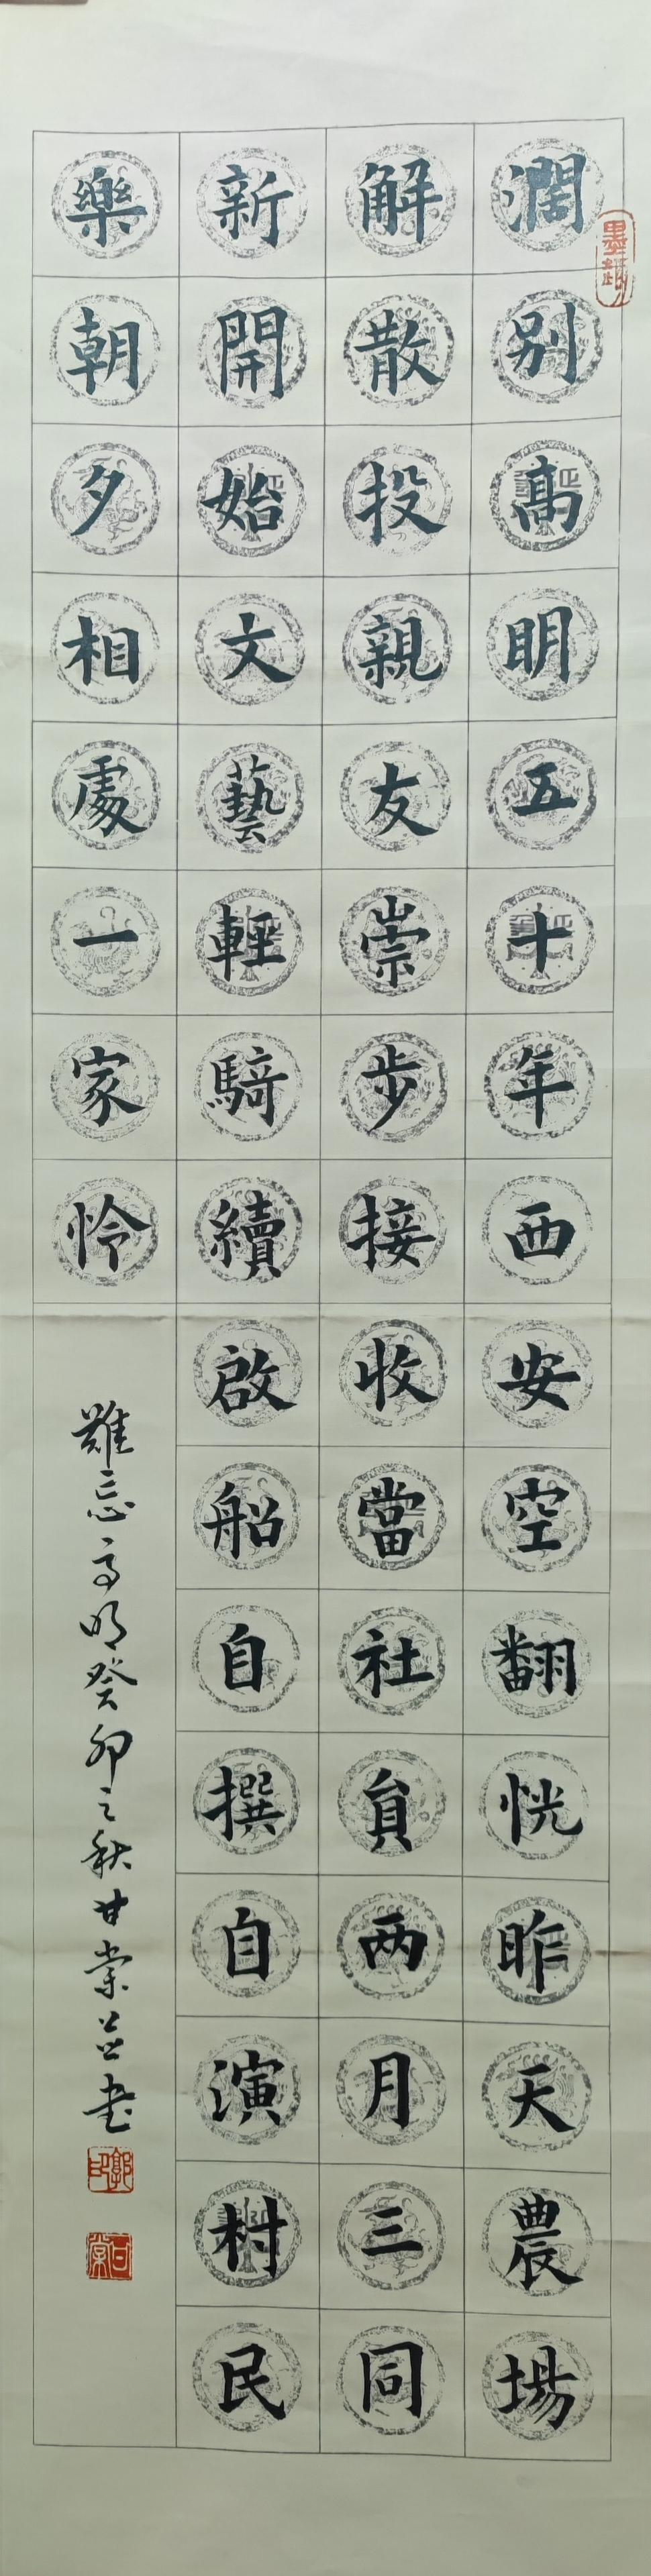 濶别髙明五十年西安空翻恍昨天農場
解散投親友崇步接收當社員两月三同
新開始文藝輕騎續啟船自撰自演村民
樂朝夕相處一家怜
難忘高明癸卯之秋甘棠并书
郭印
甘棠